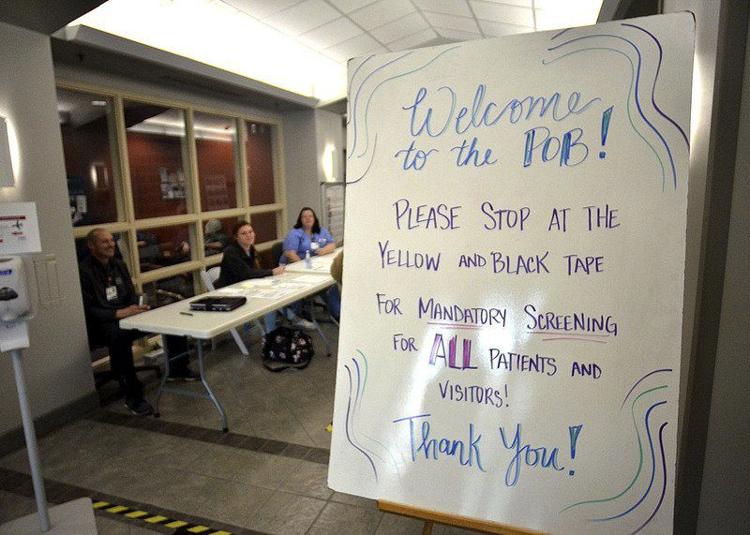 Welcome
to the POB!
PLEASE STOP AT THE
YELLOW AND BLACK TAPE
FOR MANDATORY SCREENING
FOR ALL PATIENTS AND
VISITORS!
Thank You!